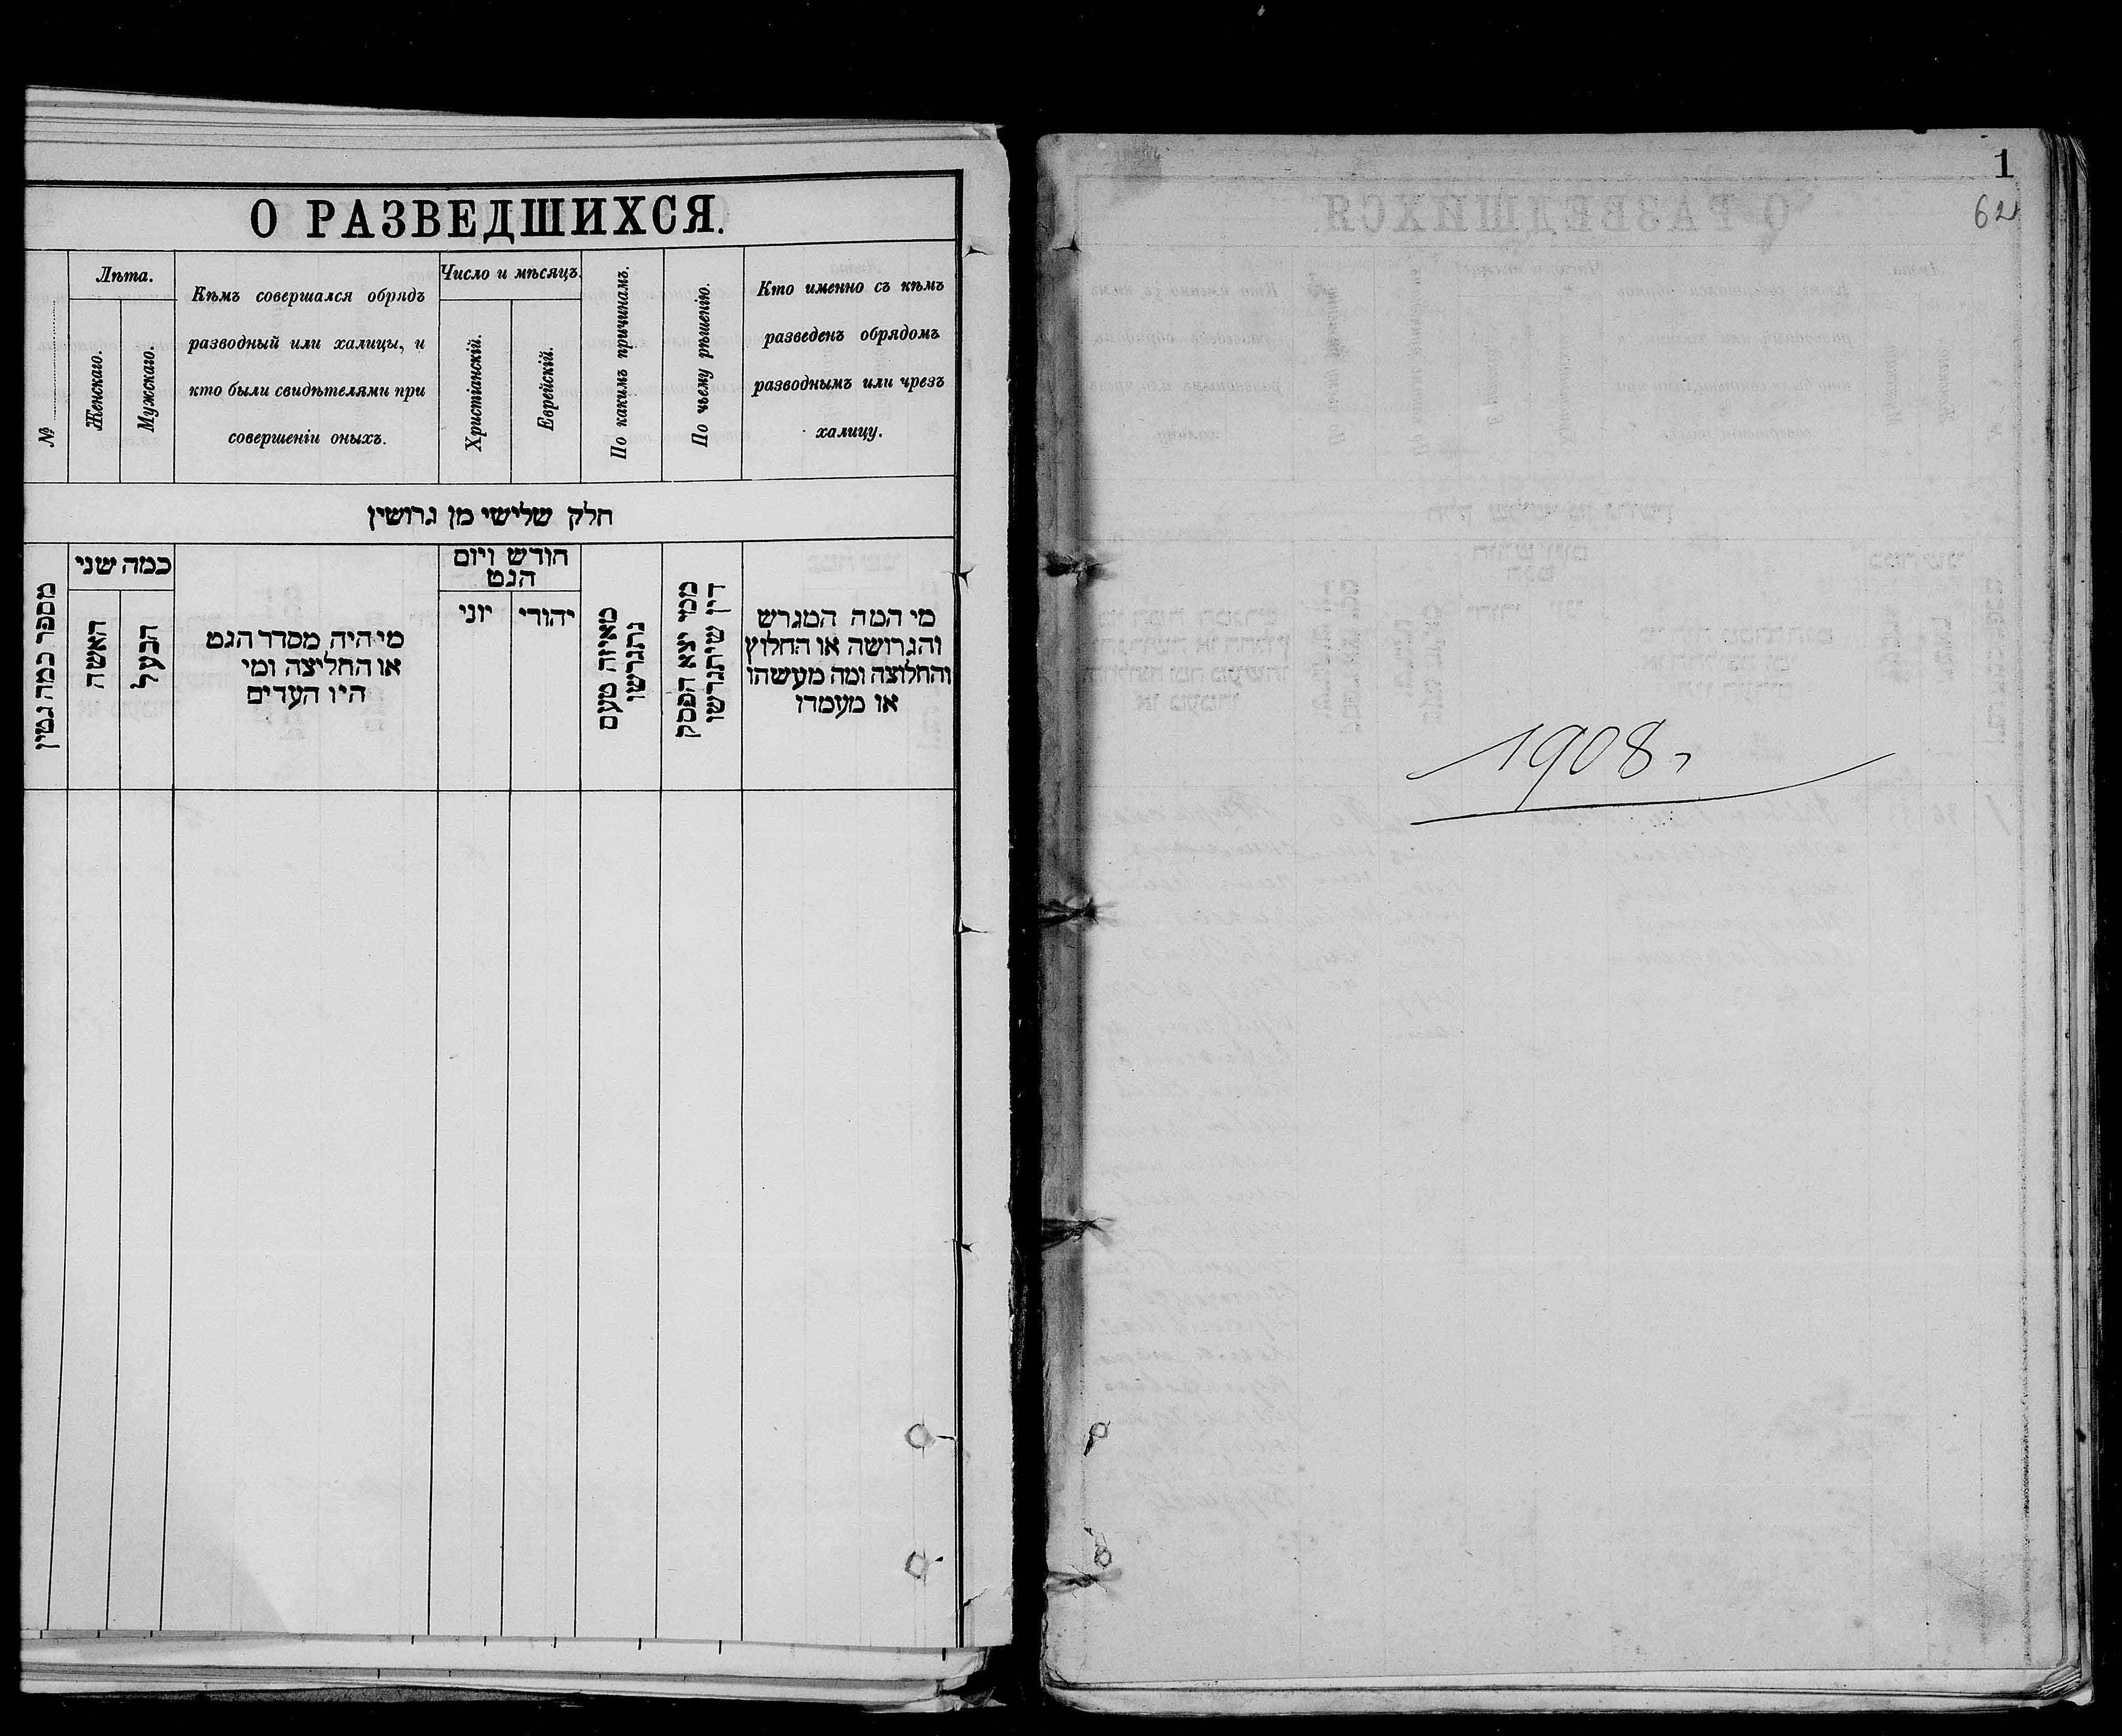 О РАЗВЕДШИХСЯ.
№
Лѣта.
Женскаго.
Мужскаго.
Кѣмъ совершался обрядъ
разводный или халицы, и
кто были свидѣтелями при
совершеніи оныхъ.
Число и мѣсяцъ.
Христіанскій.
Еврейскій.
По какимъ причинамъ.
По чьему рѣшенію.
Кто именно съ кѣмъ
разведенъ обрядомъ
разводнымъ или чрезъ
халицу.
חלק שלישי מן גרושין
מספר כמה גטין
כמה שני
האשה
הבעל
מי היה מסדר הגט
או החליצה ומי
היו העדים
חודש ויום
הגט
יוני
יהודי
מאיזה טעם
נתגרשו
ממי יצא הפסק
דין שיתגרשו
מי המה המגרש
והגרושה או החלוץ
והחלוצה ומה מעשהו
או מעמדו
1
62
1908 г